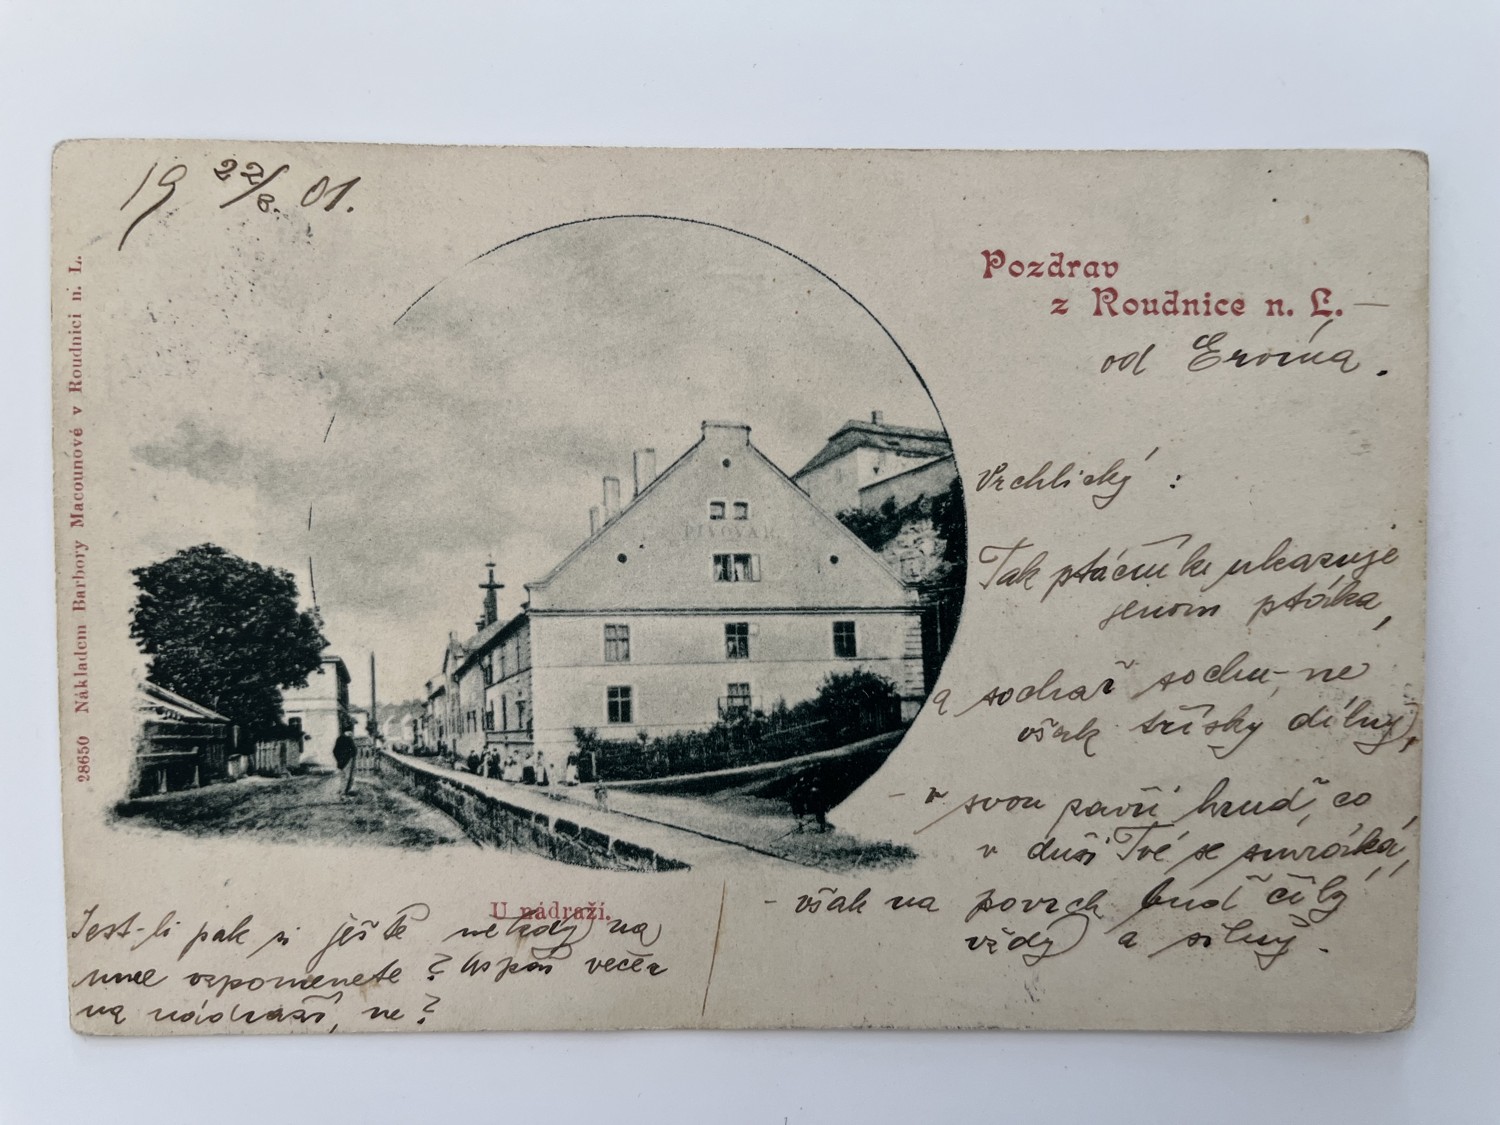 19 22/8. 01.
Pozdrav
z Roudnice n. L. —
od Ervína.
28650 Nákladem Barbory Macounové v Roudnici n. L.
PIVOVAR
Vrchlický:
Tak ptáčníke ukazuje
jenom ptáka,
a sochař sochu, ne
však třísky dílny,
- v svou
hruď, co
v duši Tvé se smráká,
- však na povrch buď čilý
vždy a silný.
U nádraží.
Jest-li pak si ještě někdy na
mne vzpomenete? Aspoň večer
na nádraží, ne?